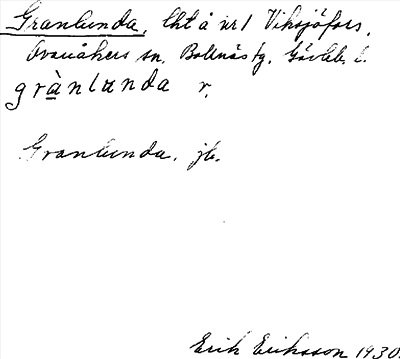 Granlunda, lht å nr 1 Viksjöfors,
Ovanåkers sn, Bollnäs tg, Gävleb. l.
grànlunda r.
Granlunda, jb.
Erik Eriksson 1930.